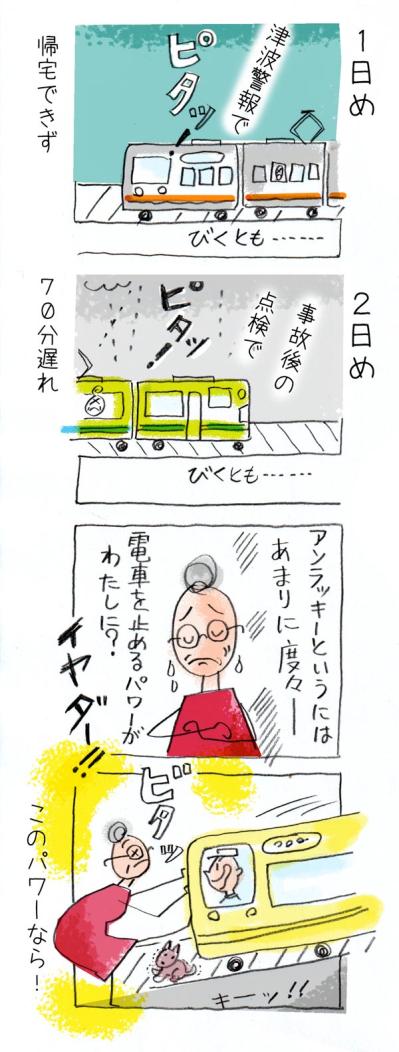 1日め
津波警報で
ピタッ!
帰宅できず
びくとも……
2日め
事故後の
点検で
ピタッ!
70分遅れ
びくとも……
アンラッキーというには
あまりに度々―
電車を止めるパワーが
わたしに？
イヤダー!!
ピタッ
このパワーなら！
キーッ!!